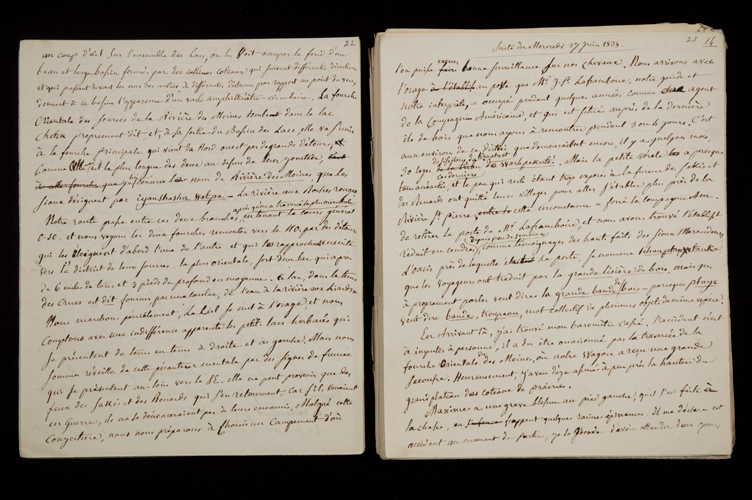 22
un coup d'œil sur l'ensemble des lacs, on les voit occuper le fond d'un
beau et large bassin formé par des coteaux qui suivent différentes directions
et qui passant devant les uns des autres à différentes distances par rapport au point de vue,
donnent à ce bassin l'apparence d'un vaste amphithéâtre circulaire. La fourche
Orientale des sources de la Rivière des Moines tombent dans le lac
proprement dit et, à sa sortie du Bassin des Lacs, elle va s'unir
à la fourche Principale qui vient du Nord ouest par de grands détours, et
comme elle est la plus longue des deux
le nom de Rivière des Moines, que les
Sioux désignent par La rivière aux Roches rouges
Notre route passe entre ces deux branches, en tenant la course générale
0.50. et nous voyons les deux fourches remonter vers le NO. par des détours
qui les éloignent d'abord l'une de l'autre et qui les rapprochent ensuite
vers le district de leurs sources. La plus orientale, sort d'un lac qui a près
de 6 milles de tour et 3 pieds de profondeur en moyenne. Ce lac, dans le tems
des Crues est dit fournir par une coulée, de l'eau à la rivière
Nous marchons péniblement, le ciel se met à l'orage, et nous
comptons avec une indifférence apparente les petits lacs herbacés qui
se présentent de tems en tems à droite et à gauche, Mais nous
sommes réveillés de cette mentale par des signes de fumées
qui se présentent au loin vers le SE. elle ne peut provenir que des
feux des Sakis et des Renards qui s'en retournent. Car s'ils venaient
en guerre, ils ne se dénonceraient pas à leurs ennemis. Malgré cette
conjecture, nous nous préparons à choisir un campement d'où
23 14
Suite du Mercredi 27 Juin 1838.
l'on puisse exercer bonne surveillance sur nos chevaux. Nous arrivons avec
l'orage au poste que Mr. J. Laframboise, notre guide et
notre interprète, a occupé pendant quelques années comme agent
de la Compagnie Américaine, et qui est situé auprès de la dernière
île de bois que nous ayons à rencontrer pendant 3 ou 4 jours. C'est
aux environs de ce district que demeuraient encore, il y a quelques mois,
30 loges Mais la petite vérole les a presque
tous anéantis, et le peu qui reste étant trop exposé à la fureur des Sakis et
des Renards ont quitté leur village pour aller s'établir plus près de la
Rivière St. pierre. cette circonstance a forcé la compagnie Am.
de retirer le poste de Mr. Laframboise, et nous avons trouvé l'établist.
réduit en cendres, comme témoignages des hauts faits des Jeunes Maraudeurs.
L'oasis près de laquelle le poste, se nomme
que les Voyageurs ont traduit par la grande lisière de bois, mais qui
à proprement parler veut dire la grande bande/bois - parceque
veut dire bande, troupeau, mot collectif de plusieurs objets de même espèce.
En Arrivant là, j'ai trouvé mon baromètre cassé, l'accident n'est
à imputer à personne, il a du être occasionné par la traversée de la
fourche Orientale des Moines, où notre Wagon a reçu une grande
secousse. Heureusement, j'avais déjà à peu près la hauteur du
grand plateau des coteaux de prairies.
Maxime a une grave blessure au pied gauche, qu'il s'est faite à
la chasse, en frappant quelques racines épineuses. Il me déclare cet
accident au moment de partir, je le d'avoir attendu deux jours,